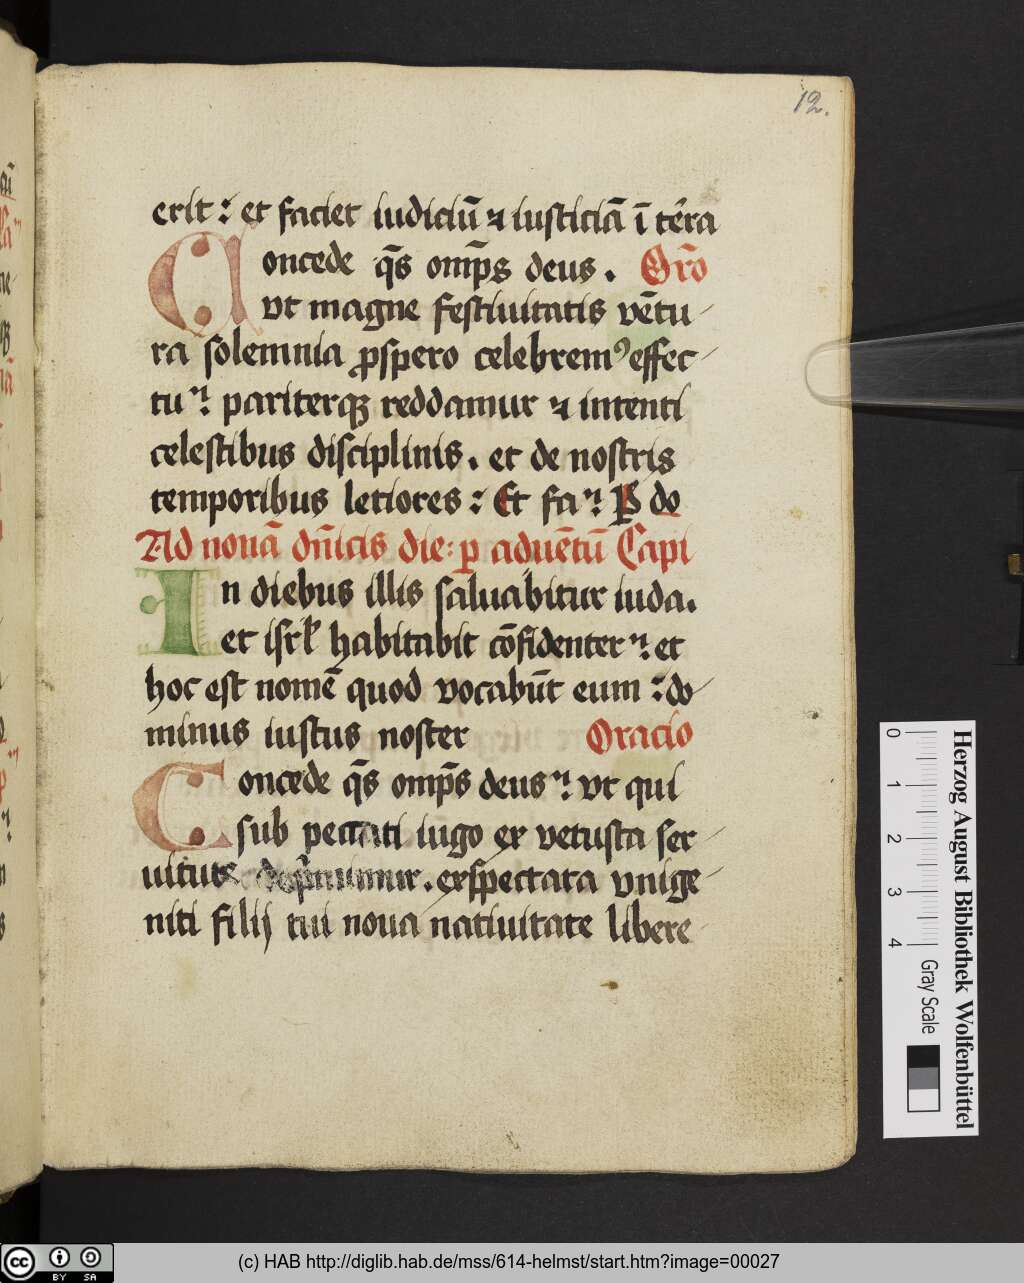 12.
erit : et faciet iudiciū ⁊ iusticiā ī t̄era
Concede q̄s om̄ps deus . Or̄o
vt magne festiuitatis vētu
ra solemnia ꝓspero celebremꝰ effec
tu : pariterqꝫ reddamur ⁊ intenti
celestibus disciplinis . et de nostris
temporibus letiores : Et fa : do
Ad nonā dn̄icis die : ꝑ aduētū Capi
In diebus illis saluabitur iuda .
et isrl̄ habitabit cōfidenter : et
hoc est nomē quod vocabūt eum : do
minus iustus noster Oracio
Concede q̄s om̄ps deus : vt qui
sub peccati iugo ex vetusta ser
uitute dep̄mimur . exspectata vnige
niti filij tui noua natiuitate libere
Herzog August Bibliothek Wolfenbüttel
0 1 2 3 4 Gray Scale
cc BY SA
(c) HAB http://diglib.hab.de/mss/614-helmst/start.htm?image=00027